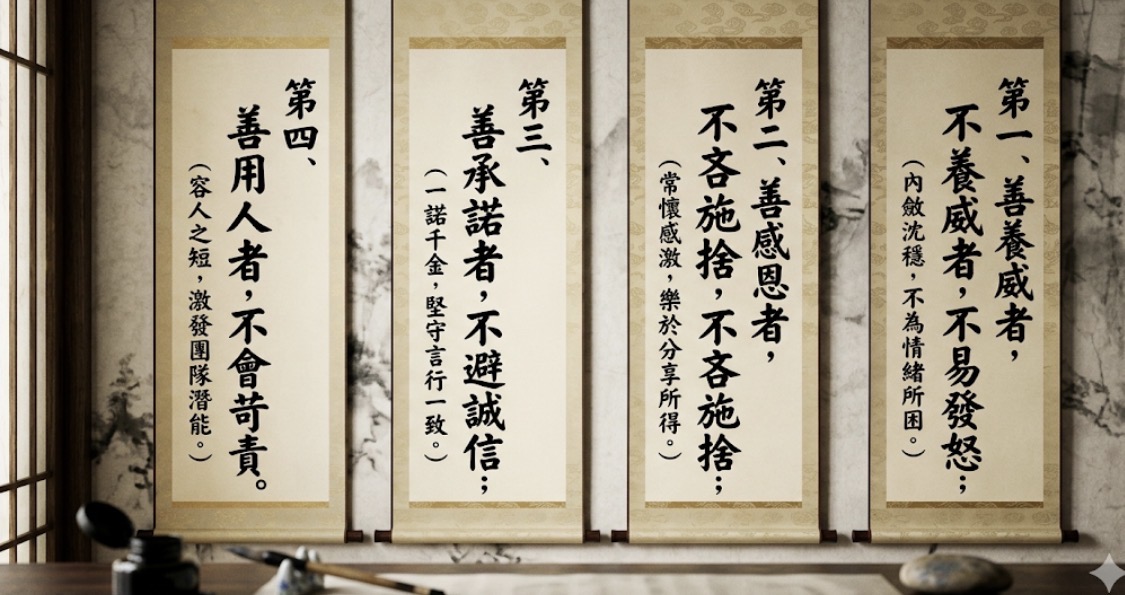 第一、善養威者，
不養威者，不易發怒；
（內斂沈穩，不為情緒所困。）
第二、善感恩者，
不吝施捨，不吝施捨；
（常懷感激，樂於分享所得。）
第三、
善承諾者，不避誠信；
（一諾千金，堅守言行一致。）
第四、
善用人者，不會苛責。
（容人之短，激發團隊潛能。）